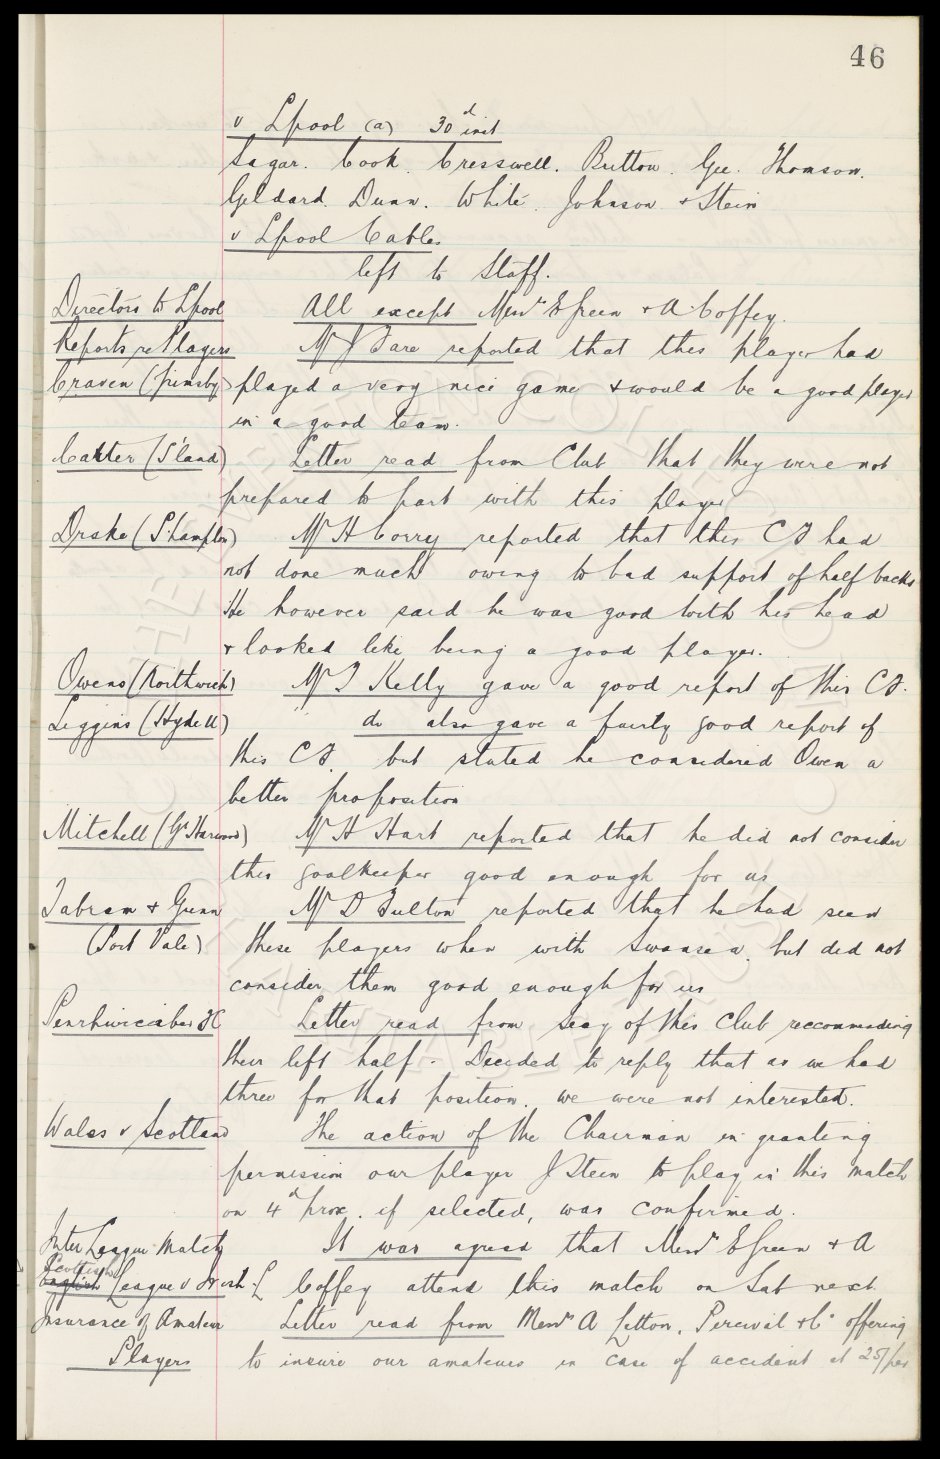 46
v Lpool (a) 30d inst
Sagar. Cook. Cresswell. Britton. Gee. Thomson.
Geldard. Dunn. White. Johnson + Stein
v Lpool Cables
left to Staff.
Directors to Lpool All except Messrs E Green + A Coffey.
Reports re Players Mr J Fare reported that this player had
Craven (Grimsby) played a very nice game + would be a good player
in a good team.
Carter (S'land) Letter read from Club that they were not
prepared to part with this player
Drake (S'hampton) Mr H Corry reported that this CF had
not done much owing to bad support of half backs
He however said he was good with his head
+ looked like being a good player.
Owens (Northwich) Mr T Kelly gave a good report of this CF.
Liggins (Hyde U) do also gave a fairly good report of
this CF. but stated he considered Owen a
better proposition
Mitchell (Gt Harwood) Mr H Hart reported that he did not consider
this goalkeeper good enough for us
Tabram + Gunn Mr D Fulton reported that he had seen
(Port Vale) these players when with Swansea, but did not
consider them good enough for us
FC Letter read from Secy of this Club reccommending
their left half. Decided to reply that as we had
three for that position, we were not interested.
Wales v Scotland The action of the Chairman in granting
permission our player J Stein to play in this match
on 4d prox. if selected, was confirmed.
Inter League Match It was agreed that Messrs E Green + A
Scottish English League v Irish L Coffey attend this match on Sat next.
Insurance of Amateur Letter read from Messrs A Letton, Percival + Co offering
Players to insure our amateurs in case of accident at 25/ per